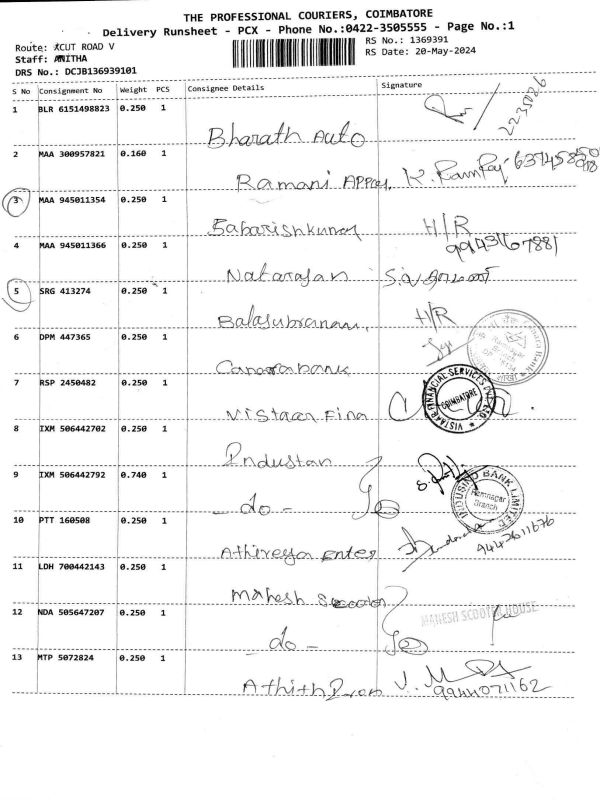 THE PROFESSIONAL COURIERS, COIMBATORE
Delivery Runsheet - PCX - Phone No.:0422-3505555 - Page No.:1
Route: XCUT ROAD V
RS No.: 1369391
Staff: ANITHA
RS Date: 20-May-2024
DRS No.: DCJB136939101
S No Consignment No Weight PCS Consignee Details Signature
1 BLR 6151498823 0.250 1
2235026
Bharath Auto
2 MAA 300957821 0.160 1
Ramani
3 MAA 945011354 0.250 1
Sabarishkumar H/R
4 MAA 945011366 0.250 1
9943167881
Natarajan
5 SRG 413274 0.250 1
H/R
6 DPM 447365 0.250 1
Canarabank
7 RSP 2450482 0.250 1
VISTAAR FINANCIAL SERVICES PVT. LTD.
COIMBATORE
Vistaar Fina
8 IXM 506442702 0.250 1
Industan
9 IXM 506442792 0.740 1
INDUSIND BANK LIMITED
Ramnagar
Branch
- do -
10 PTT 160508 0.250 1
Athireya Enter
9442611676
11 LDH 700442143 0.250 1
Mahesh Scooter
12 NDA 505647207 0.250 1
MAHESH SCOOTER HOUSE
- do -
13 MTP 5072824 0.250 1
9944071162